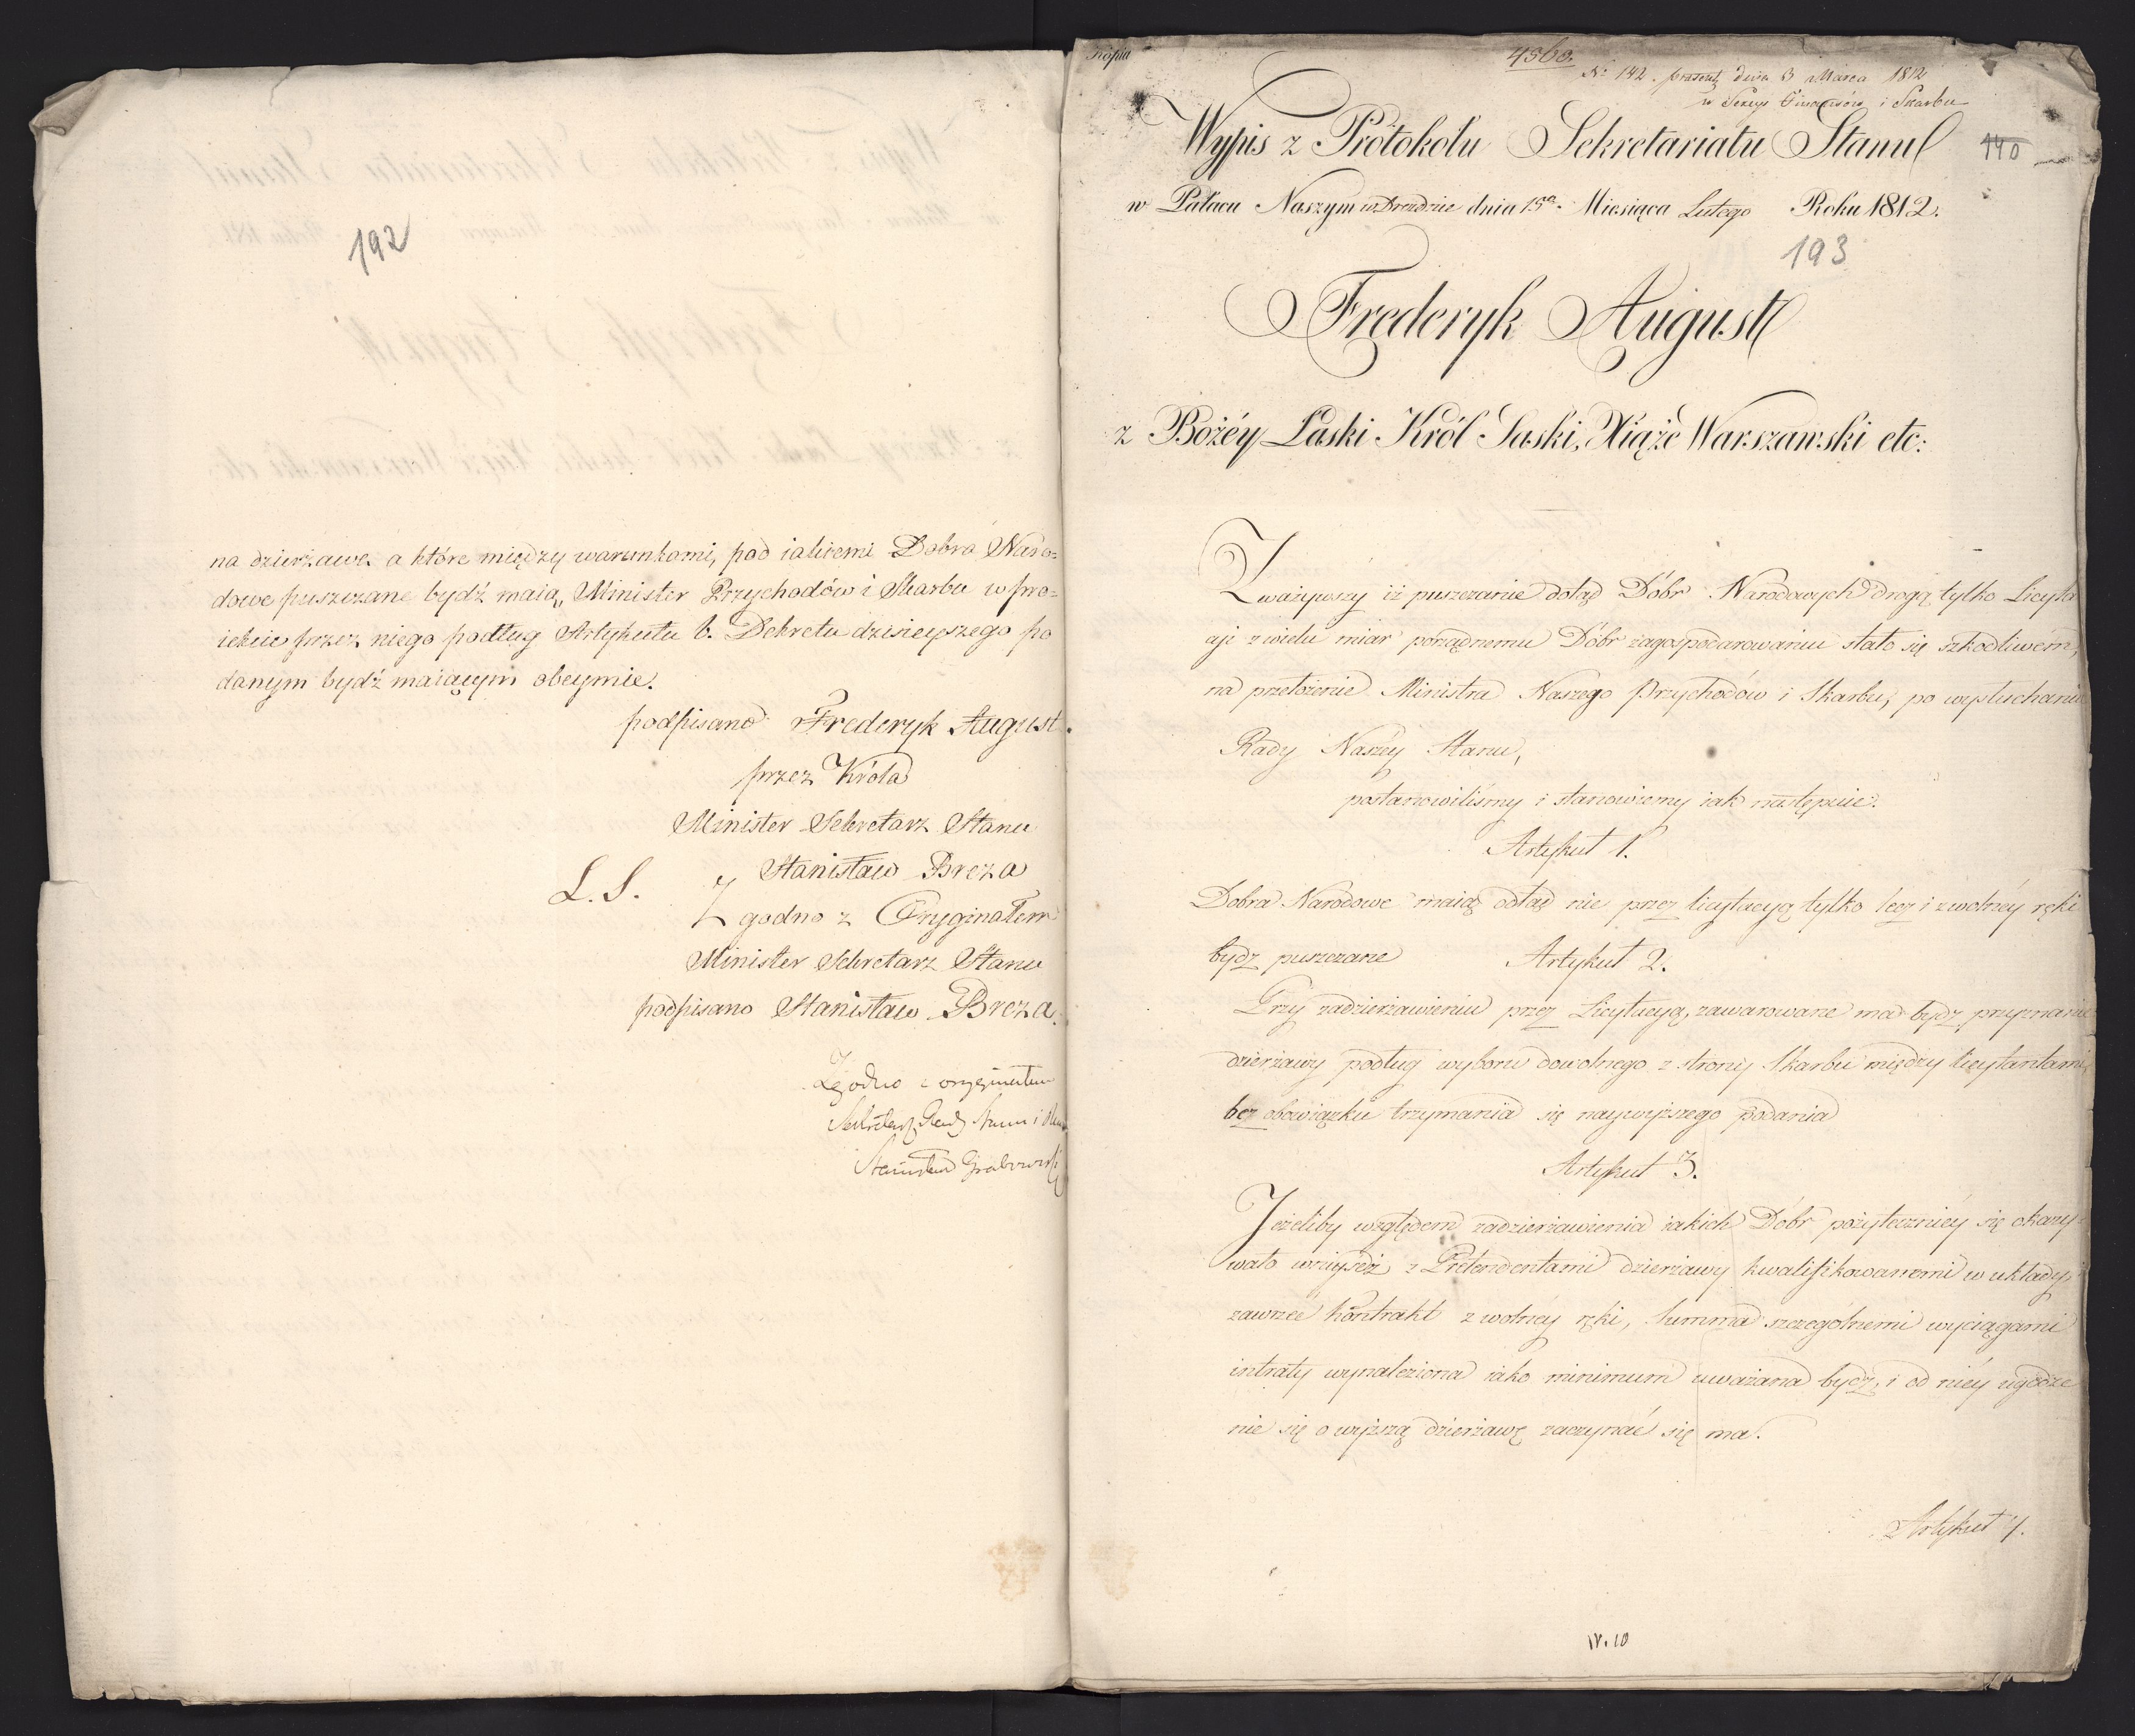 192
na dzierżawę a które między warunkami, pod iakiemi Dobra Naro=
dowe puszczane bydź maią, Minister Przychodów i Skarbu w pro=
iekcie przez niego podług Artykułu 6. Dekretu dzisieyszego po
danym bydź maiącym obeymie.
podpisano Frederyk August.
przez Króla
Minister Sekretarz Stanu
Stanisław Breza
L. S. Zgodno z Oryginałem
Minister Sekretarz Stanu
podpisano Stanisław Breza.
Zgodno z oryginałem
Sekretarz Rady Stanu i
Stanisław Grabowski
Kopia
4560.
Nº 142. praesent dnia 3 Marca 1812
w Sekcyi Finansów i Skarbu
Wypis z Protokołu Sekretariatu Stanu
140
w Pałacu Naszym w Dreznie dnia 15go Miesiąca Lutego Roku 1812.
193
Frederyk August
z Bożéy Łaski Król Saski, Xiąże Warszawski etc:
Zważywszy iż puszczanie dotąd Dóbr Narodowych drogą tylko Licyta
cyi z wielu miar porządnemu Dóbr zagospodarowaniu stało się szkodliwém,
na przełożenie Ministra Naszego Przychodów i Skarbu, po wysłuchaniu
Rady Naszéy Stanu,
postanowiliśmy i stanowiemy iak następuie.
Artykuł 1.
Dobra Narodowe maią odtąd nie przez licytacyą tylko lecz i z wolnéy ręki
bydz puszczane
Artykuł 2.
Przy zadzierżawieniu przez Licytacyą, zawarowane ma bydz przyznanie
dzierżawy podług wyboru dowolnego z strony Skarbu między licytantami
bez obowiązku trzymania się naywyższego podania
Artykuł 3.
Jeżeliby względem zadzierżawienia iakich Dóbr pożyteczniéy się okazy
wało wniyśdź z Pretendentami dzierżawy kwalifikowanemi w układy, i
zawrzeć kontrakt z wolnéy ręki, summa szczególnemi wyciągami
intraty wynaleziona iako minimum uważana bydz, i od niéy ugodze
nie się o wyższą dzierżawę zaczynać się ma.
Artykuł 4.